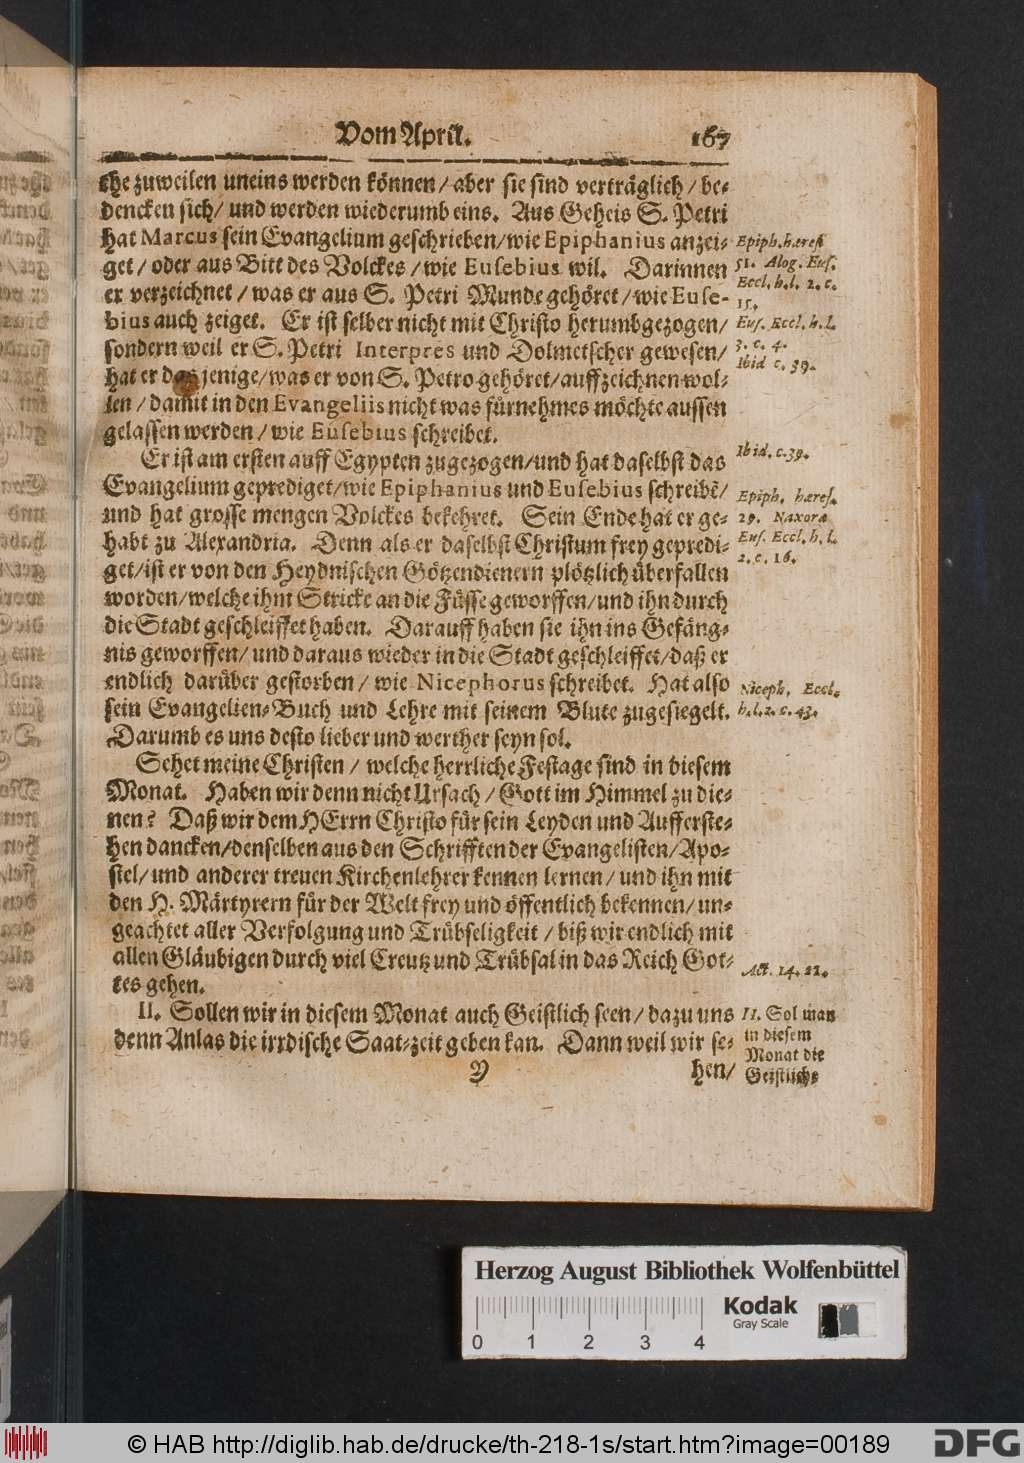 Vom April. 167
che zuweilen uneins werden können / aber sie sind verträglich / be-
dencken sich / und werden wiederumb eins. Aus Geheis S. Petri
hat Marcus sein Evangelium geschrieben / wie Epiphanius anzei-
get / oder aus Bitt des Volckes / wie Eusebius wil. Darinnen
er verzeichnet / was er aus S. Petri Munde gehöret / wie Euse-
bius auch zeiget. Er ist selber nicht mit Christo herumbgezogen /
sondern weil er S. Petri Interpres und Dolmetscher gewesen /
hat er dasjenige / was er von S. Petro gehöret / auffzeichnen wol-
len / damit in den Evangeliis nicht was fürnehmes möchte aussen
gelassen werden / wie Eusebius schreibet.
Er ist am ersten auff Egypten zugezogen / und hat daselbst das
Evangelium geprediget / wie Epiphanius und Eusebius schreibē /
und hat grosse mengen Volckes bekehret. Sein Ende hat er ge-
habt zu Alexandria. Denn als er daselbst Christum frey gepredi-
get / ist er von den Heydnischen Götzendienern plötzlich überfallen
worden / welche ihm Stricke an die Füsse geworffen / und ihn durch
die Stadt geschleiffet haben. Darauff haben sie ihn ins Gefäng-
nis geworffen / und daraus wieder in die Stadt geschleiffet / daß er
endlich darüber gestorben / wie Nicephorus schreibet. Hat also
sein Evangelien-Buch und Lehre mit seinem Blute zugesiegelt.
Darumb es uns desto lieber und werther seyn sol.
Sehet meine Christen / welche herrliche Festage sind in diesem
Monat. Haben wir denn nicht Ursach / Gott im Himmel zu die-
nen? Daß wir dem HErrn Christo für sein Leyden und Aufferste-
hen dancken / denselben aus den Schrifften der Evangelisten / Apo-
stel / und anderer treuen Kirchenlehrer kennen lernen / und ihn mit
den H. Märtyrern für der Welt frey und öffentlich bekennen / un-
geachtet aller Verfolgung und Trübseligkeit / biß wir endlich mit
allen Gläubigen durch viel Creutz und Trübsal in das Reich Got-
tes gehen.
II. Sollen wir in diesem Monat auch Geistlich seen / dazu uns
denn Anlas die irrdische Saat-zeit geben kan. Dann weil wir se-
Y hen /
Epiph. hæres.
51. Alog. Eus.
Eccl. h. l. 2. c.
15.
Eus. Eccl. h. l.
3. c. 4.
Ibid c. 39.
Ibid. c. 39.
Epiph. hæres.
29. Naxoræ
Eus. Eccl. h. l.
2. c. 16.
Niceph. Eccl.
h. l. 2. c. 43.
Act. 14. 22.
II. Sol man
in diesem
Monat die
Geistliche
Herzog August Bibliothek Wolfenbüttel
Kodak
Gray Scale
0 1 2 3 4
© HAB http://diglib.hab.de/drucke/th-218-1s/start.htm?image=00189
DFG